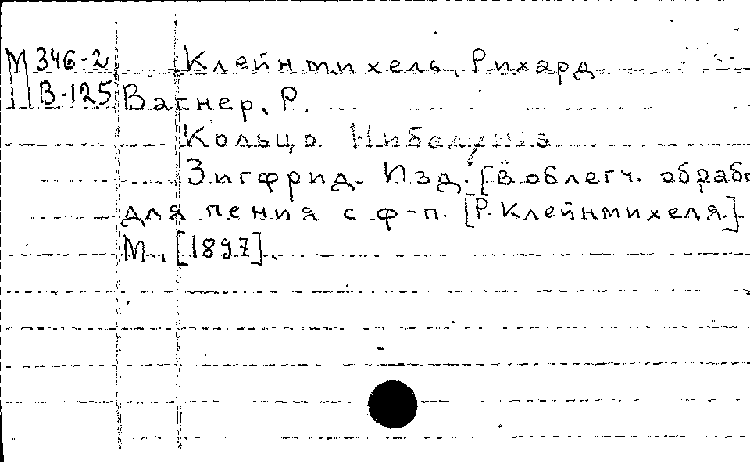 М 346-2 Клейнмихель, Рихард
В-125 Вагнер, Р.
Кольцо Нибелунга
Зигфрид. Изд. [В облегч. обраб
для пения с ф-п. [Р. Клейнмихеля].
М., [1897].